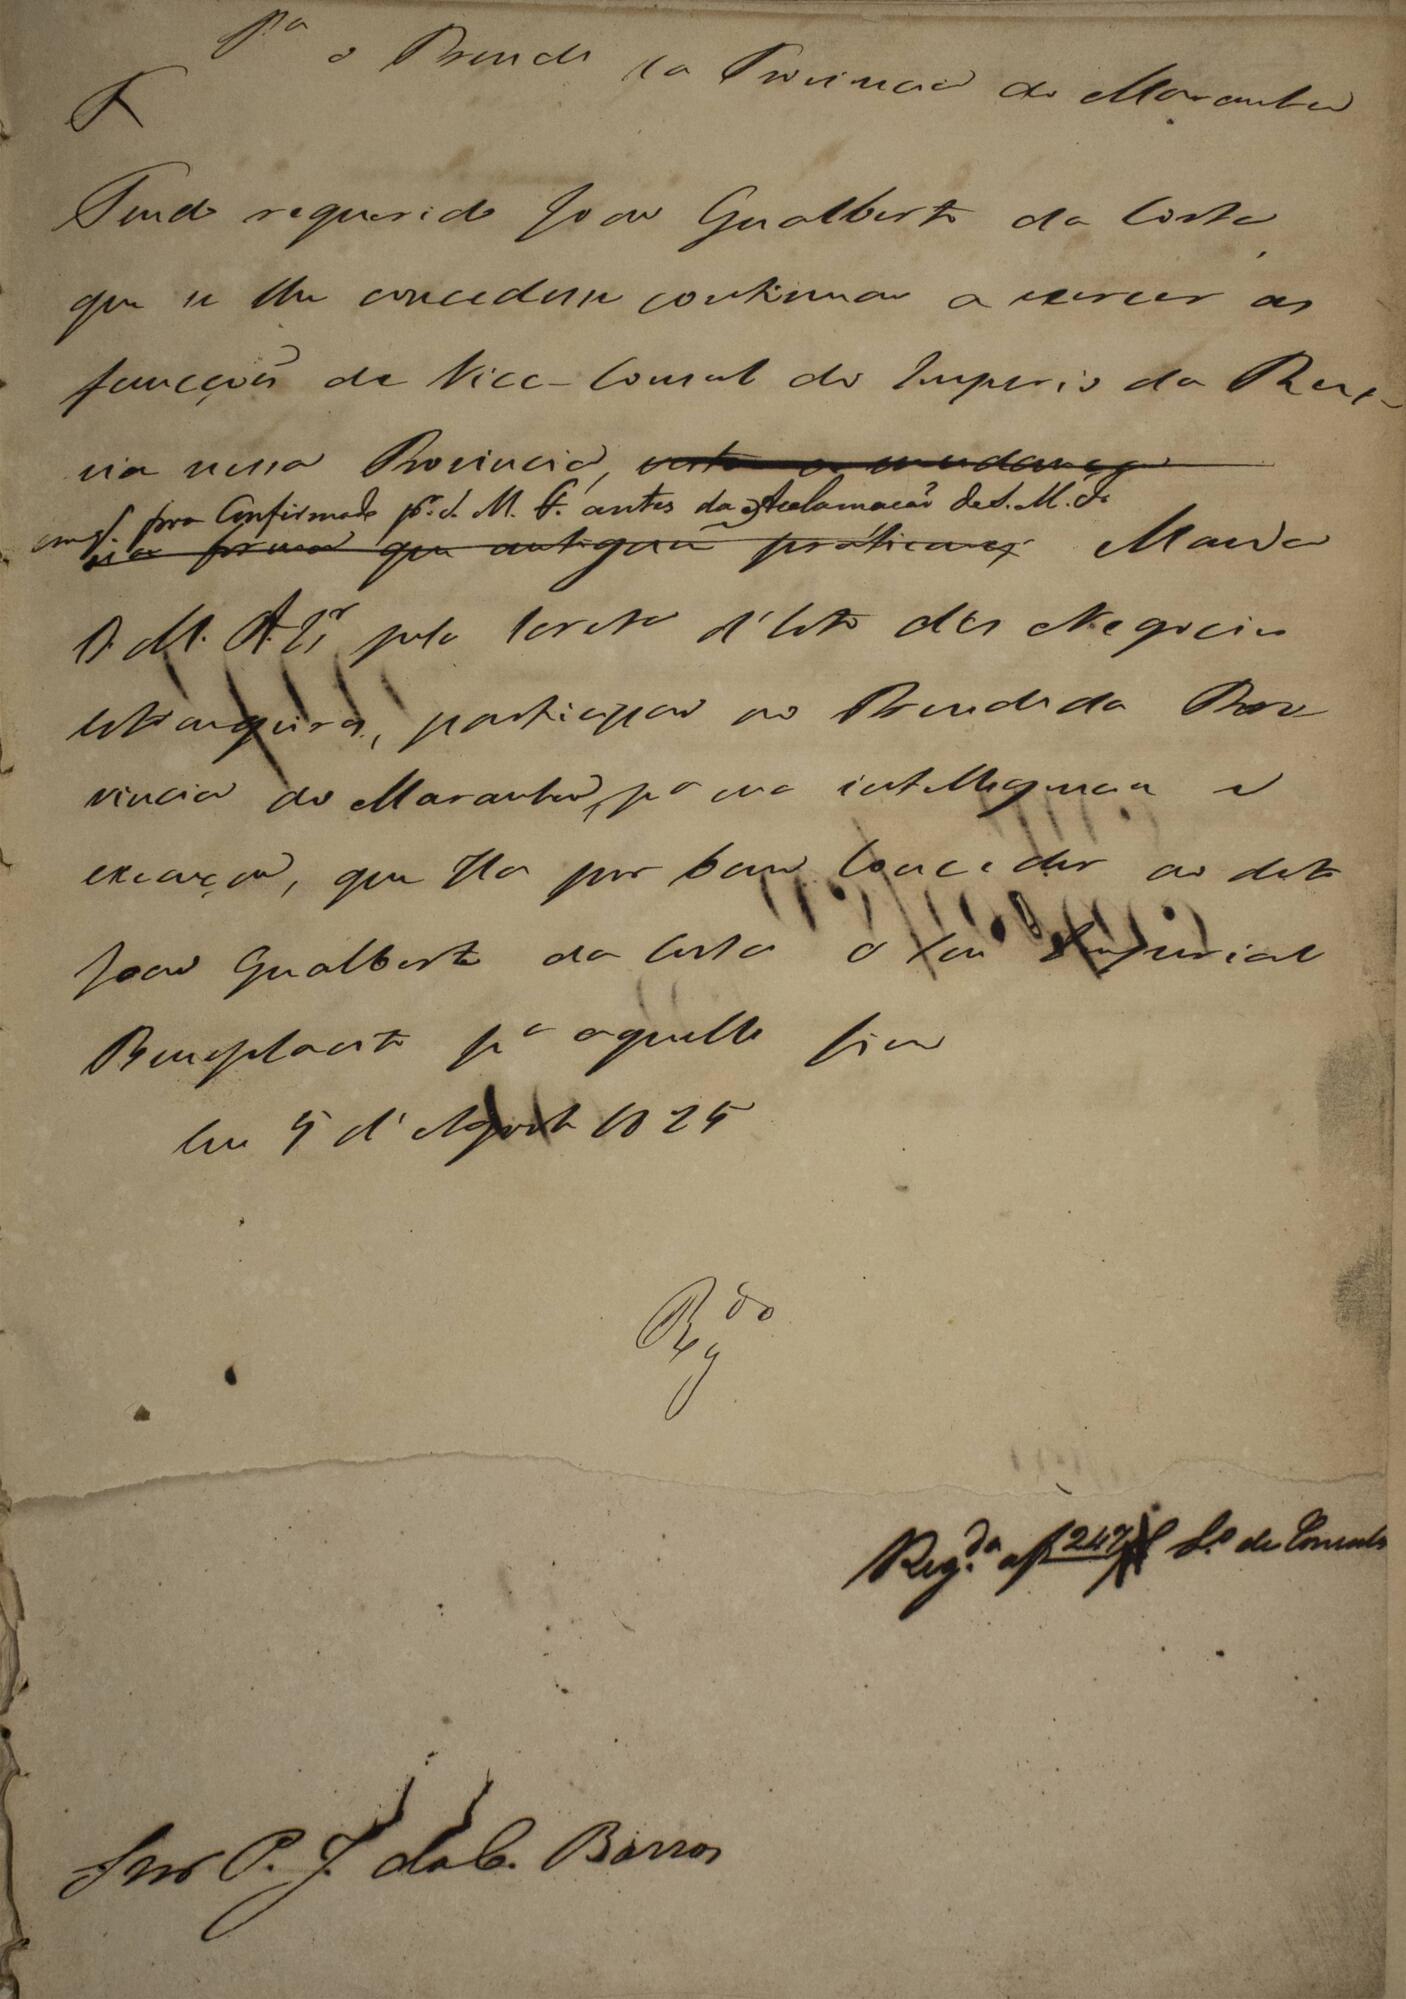 Pa o Presid.e da Provincia do Maranhão
Tendo requerido João Gualberto da Costa,
que se lhe concedesse continuar a exercer as
funcções de Vice-Consul do Imperio da Rus-
sia nessa Provincia, visto a mudança
em q. fora Confirmado pr. S. M. F. antes da Acclamação de S. M. I.
na forma que antigam praticara, Manda
S. M. O Ir pela Secreta d'Esto dos Negocios
Estrangeiros, participar ao Presid.e da Pro
vincia do Maranhão, pa sua intelligencia e
execução, que Ha por bem Conceder ao dito
João Gualberto da Costa o Seu Imperial
Beneplacito pa aquelle fim
Em 5 d'Agosto 1825
Rgdo
Reg.da a f 247 L.o de Consules
Snr P. J. da C. Barros